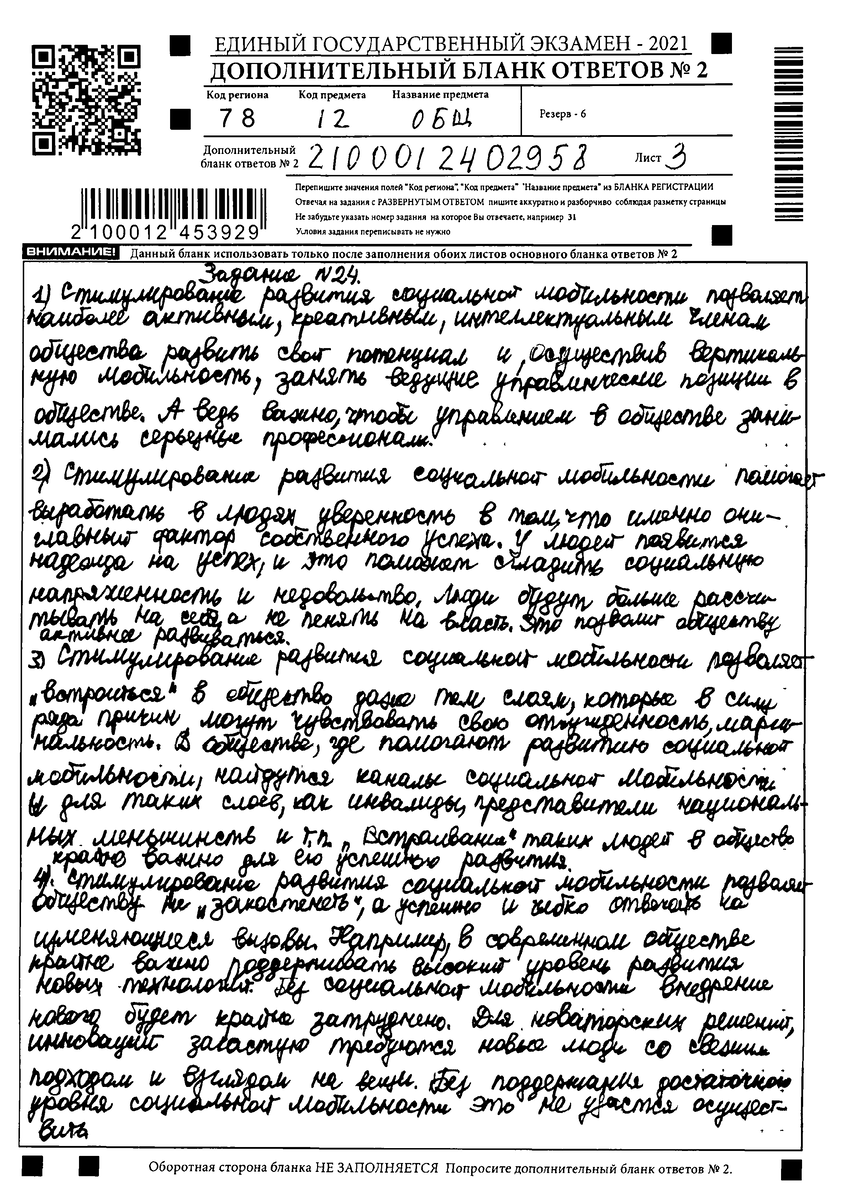 ЕДИНЫЙ ГОСУДАРСТВЕННЫЙ ЭКЗАМЕН - 2021
ДОПОЛНИТЕЛЬНЫЙ БЛАНК ОТВЕТОВ № 2
Код региона Код предмета Название предмета
78 12 ОБЩ Резерв - 6
Дополнительный
бланк ответов № 2 2100012402958 Лист 3
Перепишите значения полей "Код региона", "Код предмета" "Название предмета" из БЛАНКА РЕГИСТРАЦИИ
Отвечая на задания с РАЗВЕРНУТЫМ ОТВЕТОМ пишите аккуратно и разборчиво соблюдая разметку страницы
Не забудьте указать номер задания на которое Вы отвечаете, например 31
Условия задания переписывать не нужно
2 100012 453929
ВНИМАНИЕ! Данный бланк использовать только после заполнения обоих листов основного бланка ответов № 2
Задание N24.
1) Стимулирование развития социальной мобильности позволяет
наиболее активным, креативным, интеллектуальным членам
общества развить свой потенциал и, осуществив вертикаль-
ную мобильность, занять ведущие управленческие позиции в
обществе. А ведь важно, чтобы управлением в обществе зани-
мались серьезные профессионалы.
2) Стимулирование развития социальной мобильности помогает
выработать в людях уверенность в том, что именно они-
главный фактор собственного успеха. У людей появится
надежда на успех, и это поможет сгладить социальную
напряженность и недовольство. Люди будут больше рассчи-
тывать на себя, а не пенять на власть. Это позволит обществу
активнее развиваться.
3) Стимулирование развития социальной мобильности позволяет
„встроиться" в общество даже тем слоям, которые в силу
ряда причин могут чувствовать свою отчужденность, марги-
нальность. В обществе, где помогают развитию социальной
мобильности, найдутся каналы социальной мобильности
и для таких слоев, как инвалиды, представители националь-
ных меньшинств и т.п. „Встраивание" таких людей в общество
крайне важно для его успешного развития.
4). Стимулирование развития социальной мобильности позволяет
обществу не „закостенеть", а успешно и гибко отвечать на
изменяющиеся вызовы. Например, в современном обществе
крайне важно поддерживать высокий уровень развития
новых технологий. Без социальной мобильности внедрение
нового будет крайне затруднено. Для новаторских решений,
инноваций зачастую требуются новые люди со свежим
подходом и взглядом на вещи. Без поддержания достаточного
уровня социальной мобильности это не удастся осущест-
вить
Оборотная сторона бланка НЕ ЗАПОЛНЯЕТСЯ Попросите дополнительный бланк ответов № 2.